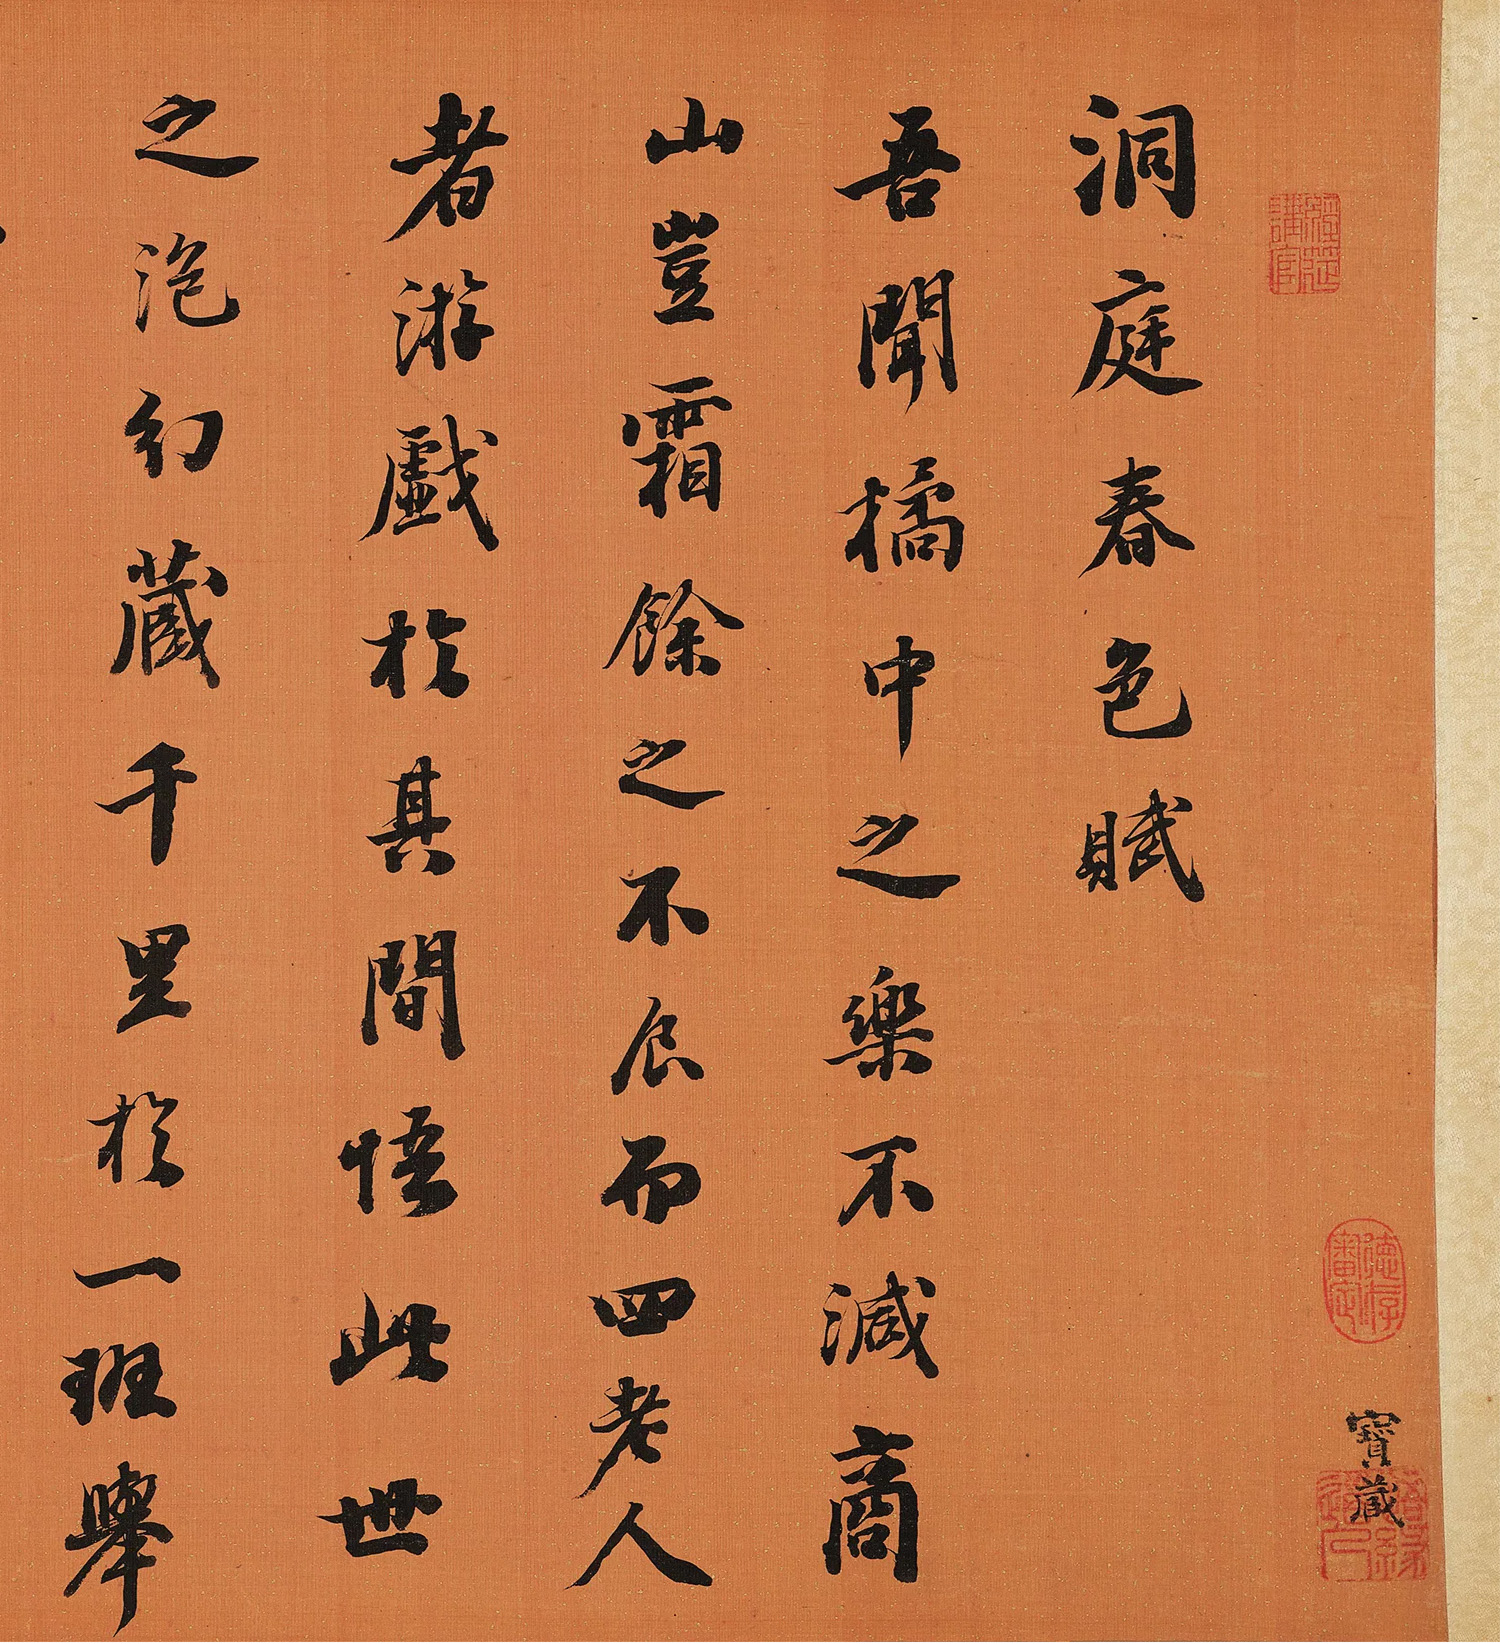 寶藏
洞庭春色賦
吾聞橘中之樂不減商
山豈霜餘之不食而四老人
者游戲於其間悟此世
之泡幻藏千里於一班舉